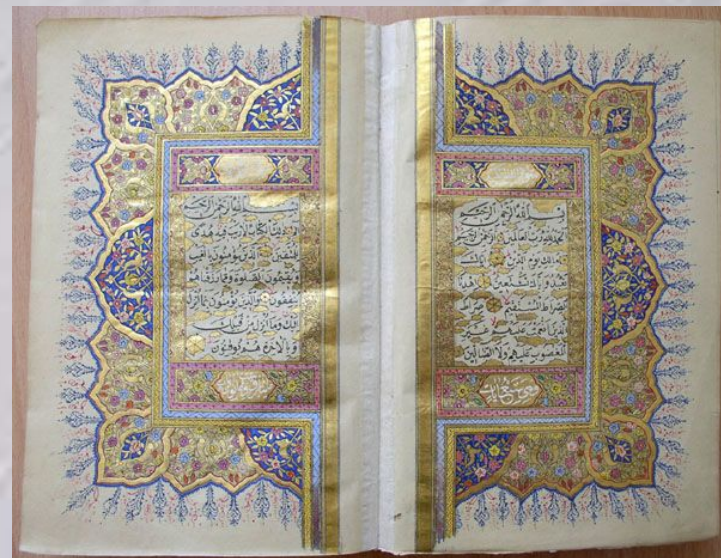 بسم الله الرحمن الرحيم
الحمد لله رب العالمين الرحمن الرحيم
مالك يوم الدين اياك
نعبد واياك نستعين اهدنا
الصراط المستقيم صراط
الذين انعمت عليهم غير
المغضوب عليهم ولا الضالين
وهي سبع ايات
بسم الله الرحمن الرحيم
الم ذلك الكتاب لا ريب فيه هدى
للمتقين الذين يؤمنون بالغيب
ويقيمون الصلوة ومما رزقناهم
ينفقون والذين يؤمنون بما انزل
اليك وما انزل من قبلك
وبالاخرة هم يوقنون